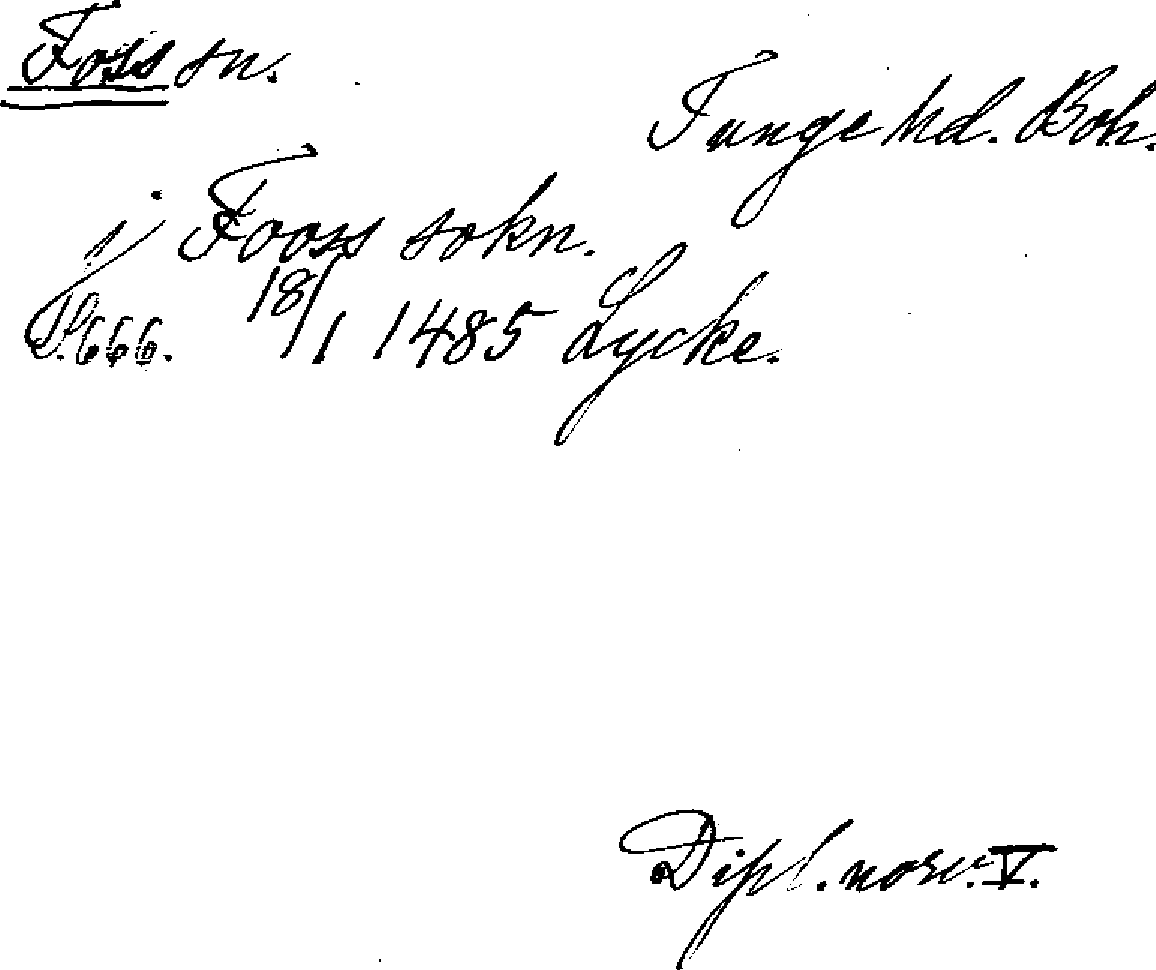 Foss sn.
Tunge hd. Boh.
i Fooss sokn.
S. 666. 18/1 1485 Lycke.
Dipl. norv. V.